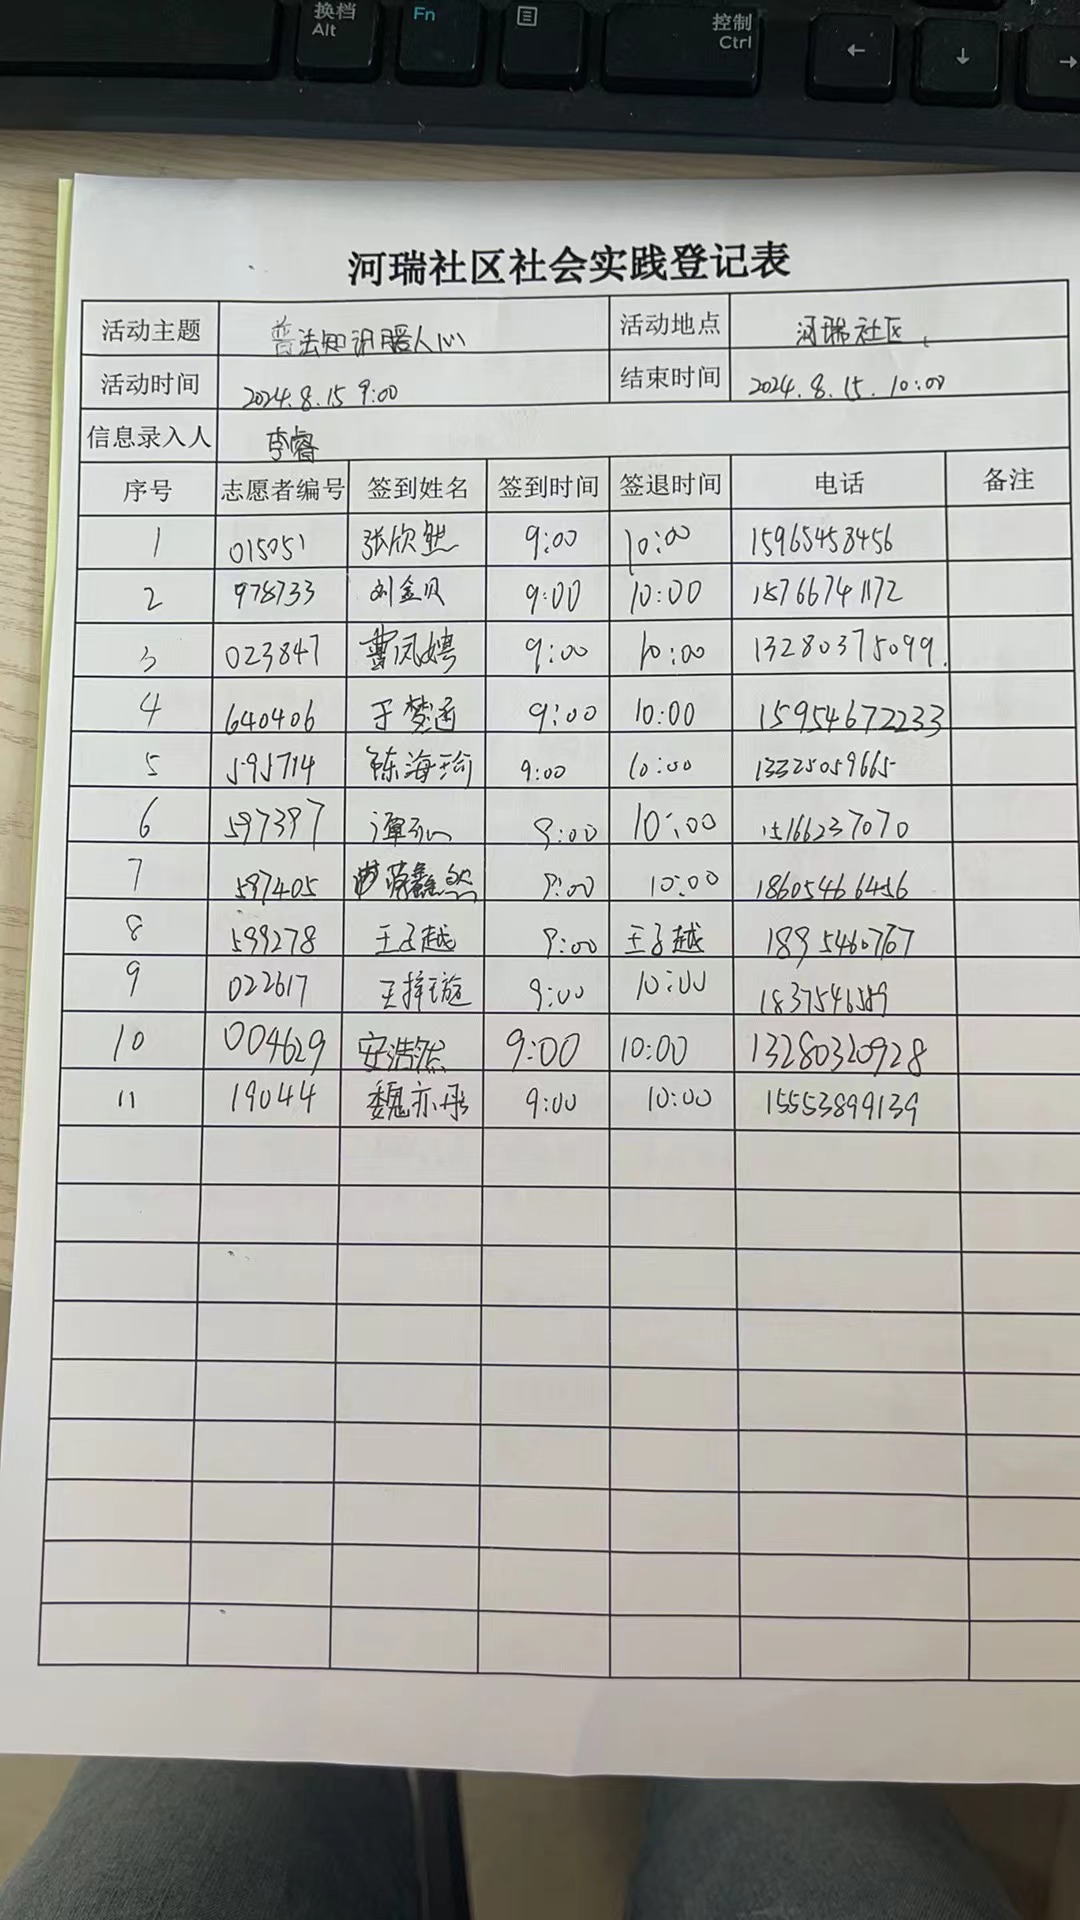 换档
Alt
Fn
控制
Ctrl
← ↓ →
河瑞社区社会实践登记表
活动主题 普法知识暖人心 活动地点 河瑞社区
活动时间 2024.8.15 9:00 结束时间 2024.8.15. 10:00
信息录入人 李睿
序号 志愿者编号 签到姓名 签到时间 签退时间 电话 备注
1 015051 张欣然 9:00 10:00 15965458456
2 978733 刘金贝 9:00 10:00 15766741172
3 023847 曹凤娉 9:00 10:00 13280375099.
4 640406 于梦涵 9:00 10:00 15954672233
5 595714 陈海瑜 9:00 10:00 13325059665
6 597397 谭 9:00 10:00 15166237070
7 597405 鑫然 9:00 10:00 18605466456
8 599278 王子越 9:00 王子越 1895460767
9 022617 王梓璇 9:00 10:00
10 004629 安浩然 9:00 10:00 13280320928
11 19044 魏亦彤 9:00 10:00 15553899139